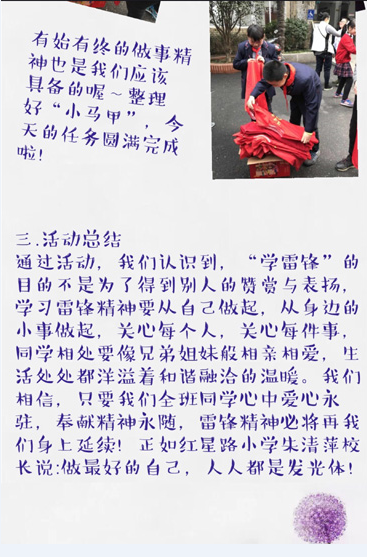 有始有终的做事精
神也是我们应该
具备的喔～整理
好“小马甲”，今
天的任务圆满完成
啦！
三.活动总结
通过活动，我们认识到，“学雷锋”的
目的不是为了得到别人的赞赏与表扬，
学习雷锋精神要从自己做起，从身边的
小事做起，关心每个人，关心每件事，
同学相处要像兄弟姐妹般相亲相爱，生
活处处都洋溢着和谐融洽的温暖。我们
相信，只要我们全班同学心中爱心永
驻，奉献精神永随，雷锋精神必将再我
们身上延续！正如红星路小学朱清萍校
长说:做最好的自己，人人都是发光体！